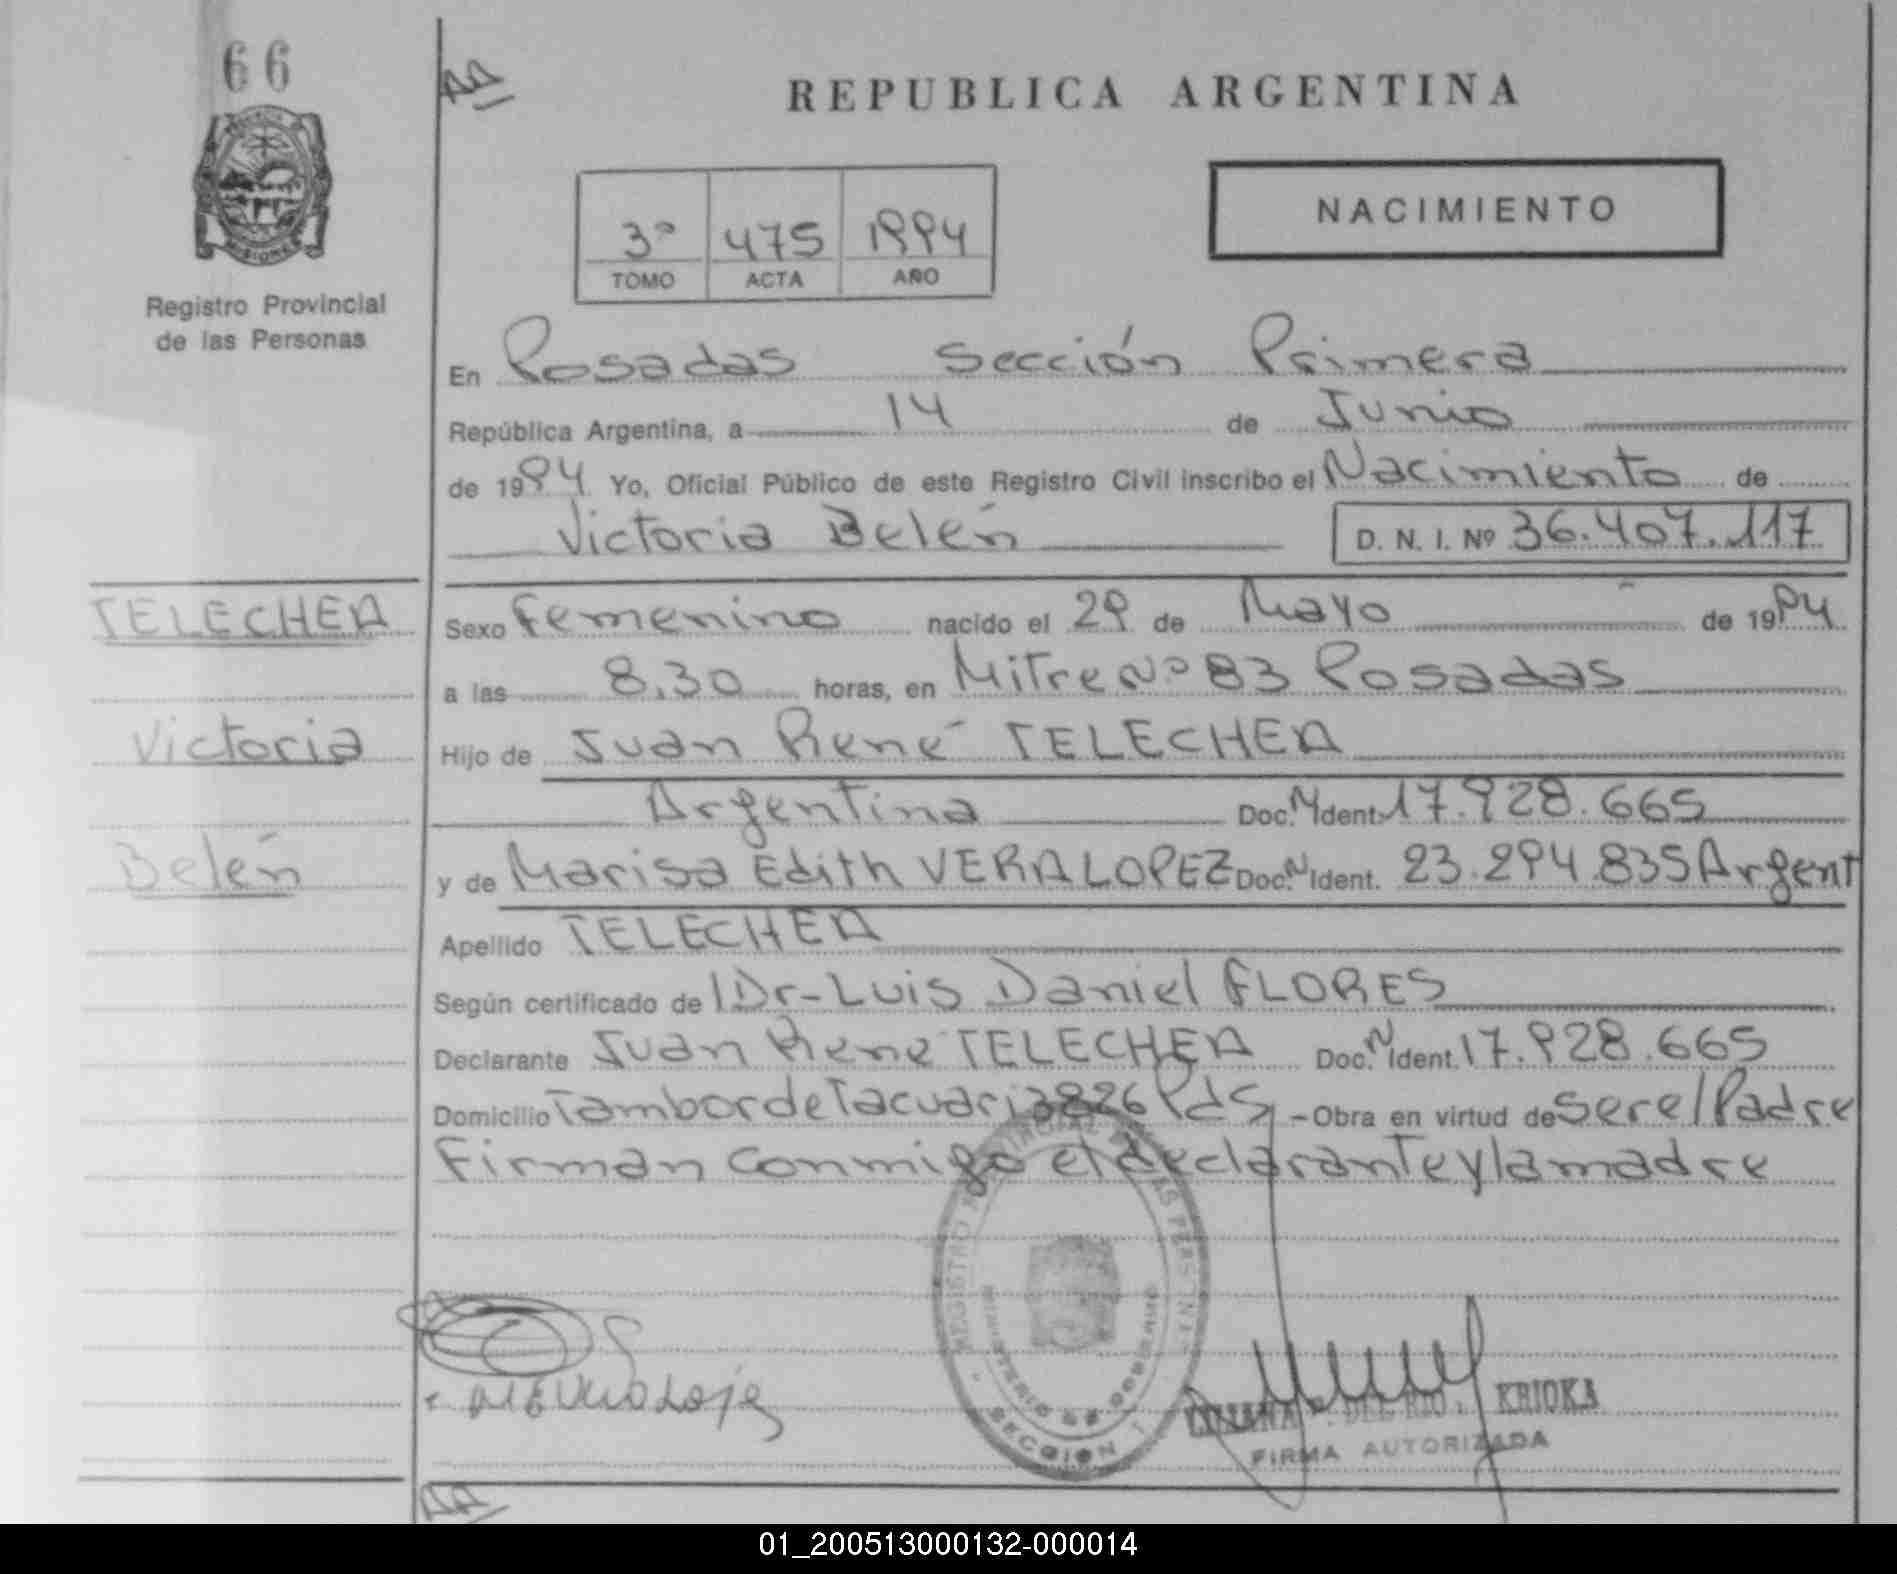 66
AA
REPUBLICA ARGENTINA
3º 475 1994
TOMO ACTA AÑO
NACIMIENTO
Registro Provincial
de las Personas
En Posadas Sección Primera
República Argentina, a 14 de Junio
de 1994 Yo, Oficial Público de este Registro Civil inscribo el Nacimiento de
Victoria Belén D. N. I. Nº 36.407.117
TELECHEA
Victoria
Belén
Sexo Femenino nacido el 29 de Mayo de 1994
a las 8,30 horas, en Mitre Nº 83 Posadas
Hijo de Juan René TELECHEA
Argentina Doc. N Ident. 17.928.665
y de Marisa Edith VERA LOPEZ Doc. N Ident. 23.294.835 Argent
Apellido TELECHEA
Según certificado de Dr-Luis Daniel FLORES
Declarante Juan René TELECHEA Doc. N Ident. 17.928.665
Domicilio Tambor de Tacuari 3826 PdS - Obra en virtud de ser el Padre
Firman conmigo el declarante y la madre
REGISTRO PROVINCIAL DE LAS PERSONAS
MINISTERIO DE GOBIERNO
SECCION 1
DEL RIO KRIOKA
FIRMA AUTORIZADA
AA
01_200513000132-000014